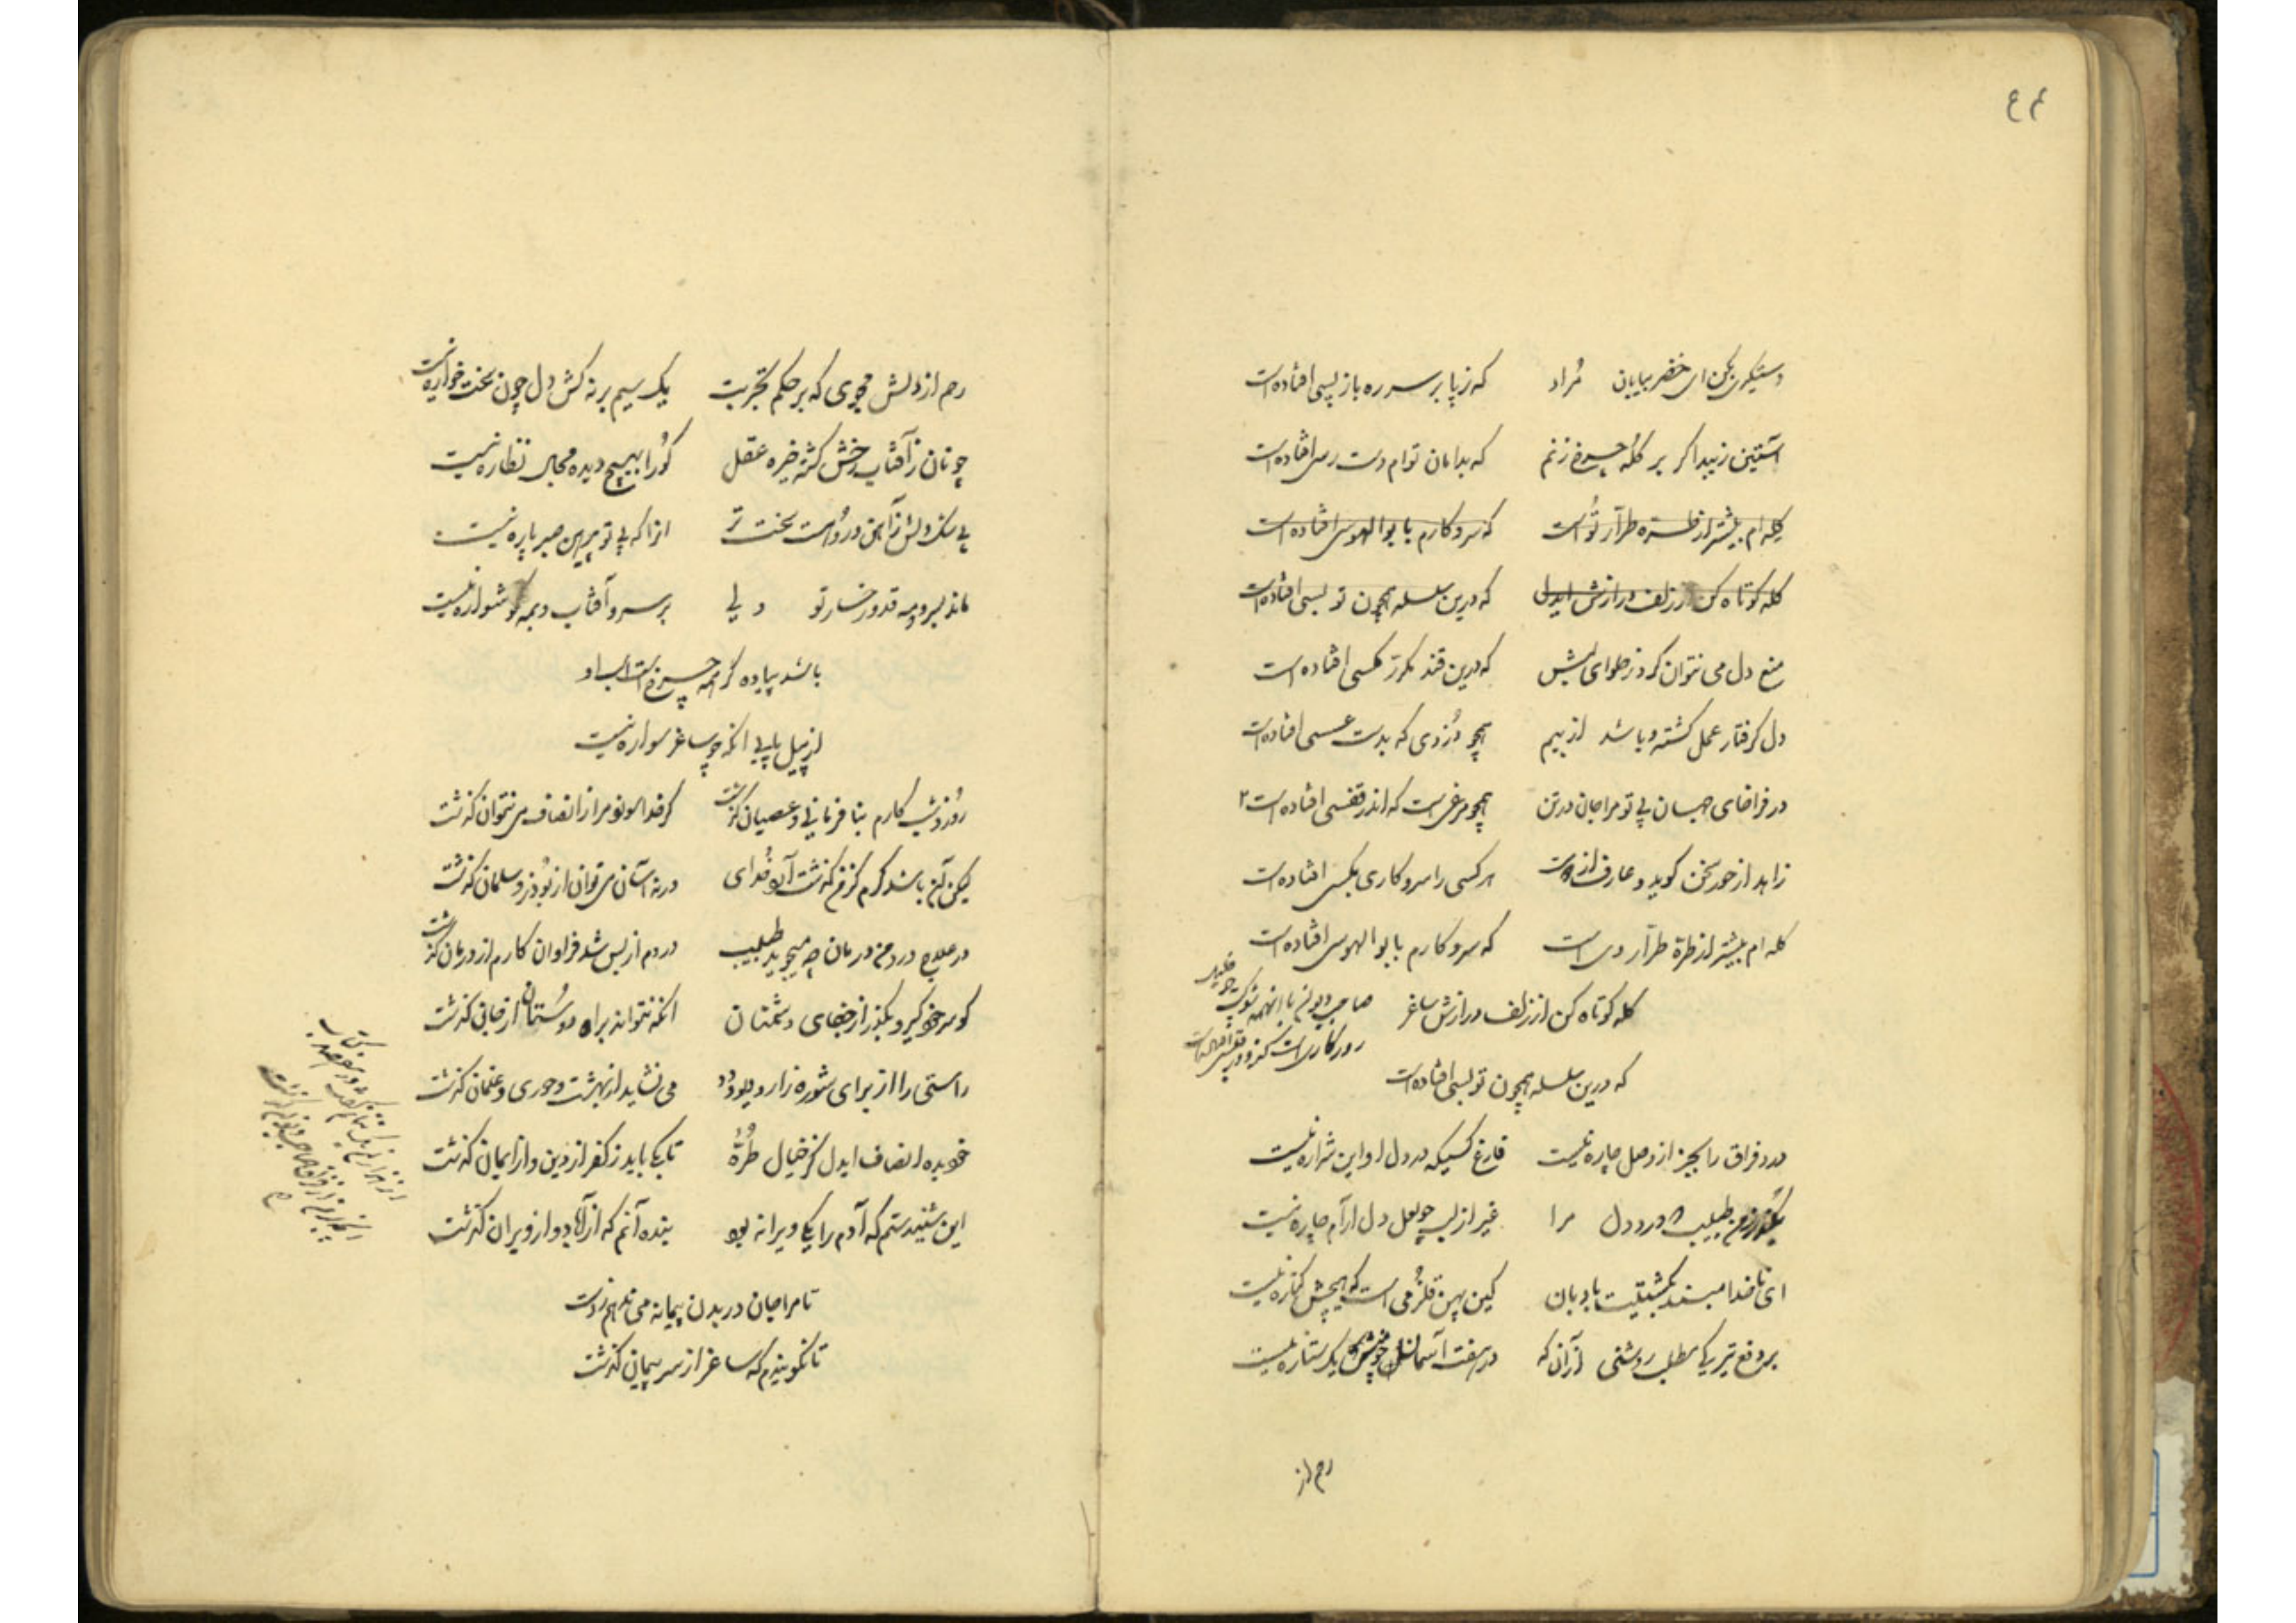 دستگیری بکن ای خضر بیابان مراد که ز پا بر سر ره باز پسی افتاده است
آستین زیبد اگر بر کله چرخ زنم که بدامان توام دست رسی افتاده است
کله ام بیشتر از طره طرار تو است که سر و کارم با بوالهوسی افتاده است
کله کوتاه کن از زلف درازش ایدل که درین سلسله همچون تو بسی افتاده است
منع دل می نتوان کرد ز حلوای لبش که درین قند مکرر مکسی افتاده است
دل کرفتار عمل کشته و باشد از بیم همچو دزدی که بدست عسسی افتاده است
در فراخای جهان بی تو مرا جان در تن همچو مرغی است که اندر قفسی افتاده است ۲
زاهد از حور سخن کوید و عارف از دوست هر کسی را سر و کاری بکسی افتاده است
کله ام بیشتر از طرهٔ طرار وی است که سر و کارم با بوالهوسی افتاده است
کله کوتاه کن از زلف درازش ساغر
که درین سلسله همچون تو بسی افتاده است
درد فراق را بجز از وصل چاره نیست فارغ کسیکه در دل او این شراره نیست
بگذر ز من طبیب که درد دل مرا غیر از لب چو لعل دل ارام چاره نیست
ای ناخدا مبند بکشتیت بادبان کین بهن قلزمی است که هیچش کناره نیست
بر دفع تیرکی مطلب روشنی ازان که در هفت آسمانش یک ستاره نیست
رحم از
رحم از دلش مجوی که بر حکم تجربت یک سیم بر نه کش دل چون سخت خواره نیست
چونان ز آفتاب رخش کشته خیره عقل کورا بهیچ دیده مجال نظاره نیست
بی شک دلش ز آهن و رواست سخت تر انرا که بی تو پیرهن صبر پاره نیست
ماند بسرو و مه قد و رخسار تو ولی بر سرو آفتاب و بمه کوشواره نیست
باشد پیاده کرهمه چرخ است اسب او
از پیل پایی انکه چو ساغر سواره نیست
روز و شب کارم بنا فرمانی و عصیان کذشت کر خدا اونو مرا از انصاف می نتوان کذشت
لیکن آن باشد کرم کز من کذشت آرد خدای ورنه آسان می توان از بوذر و سلمان کذشت
در علاج درد من درمان چه میجوید طبیب دردم از بس شد فراوان کارم از درمان کذشت
کو سر خود کیر و بکذر از جفای دشمنان انکه نتواند براه دوستان از جان کذشت
راستی را از برای شوره زار و دیو و دد می نشاید از بهشت و حوری و غلمان کذشت
خود بده انصاف ایدل کز خیال طرّهٔ تا بکی باید ز کفر از دین و از ایمان کذشت
این شنیدستم که آدم را یکی ویرانه بود بنده آنم که از آباد و از ویران کذشت
تا مرا جان در بدن پیمانه می ندهم ز دست
تا نکویندم که ساغر از سر پیمان کذشت